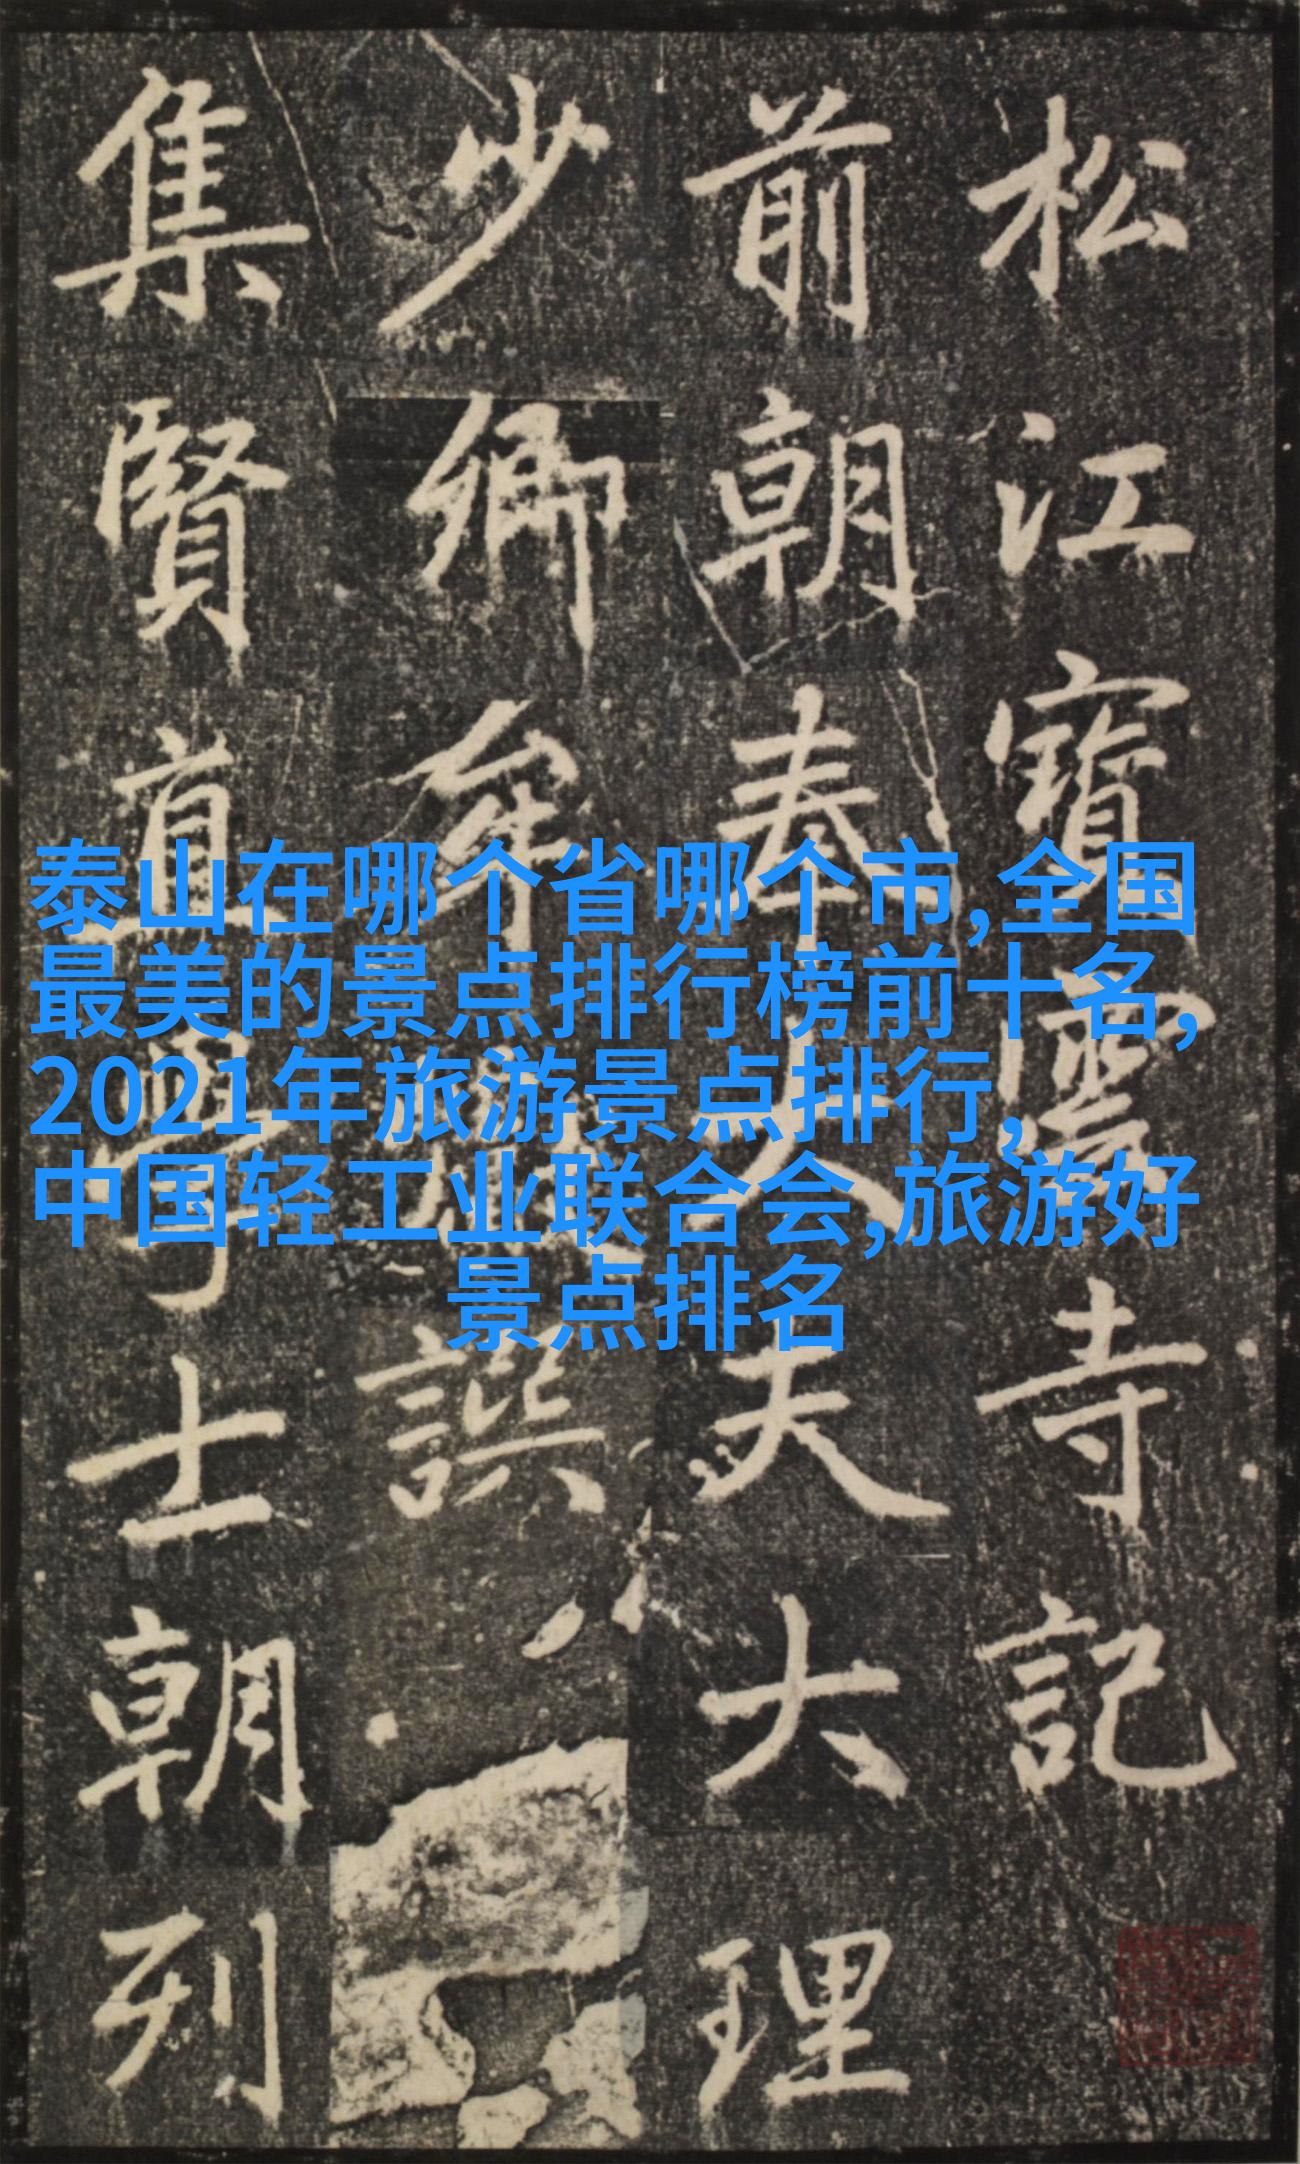 松江寶雲寺記
前朝奉大夫大理
少卿牟譔
集賢直學士朝列
泰山在哪个省哪个市,全国
最美的景点排行榜前十名,
2021年旅游景点排行,
中国轻工业联合会,旅游好
景点排名